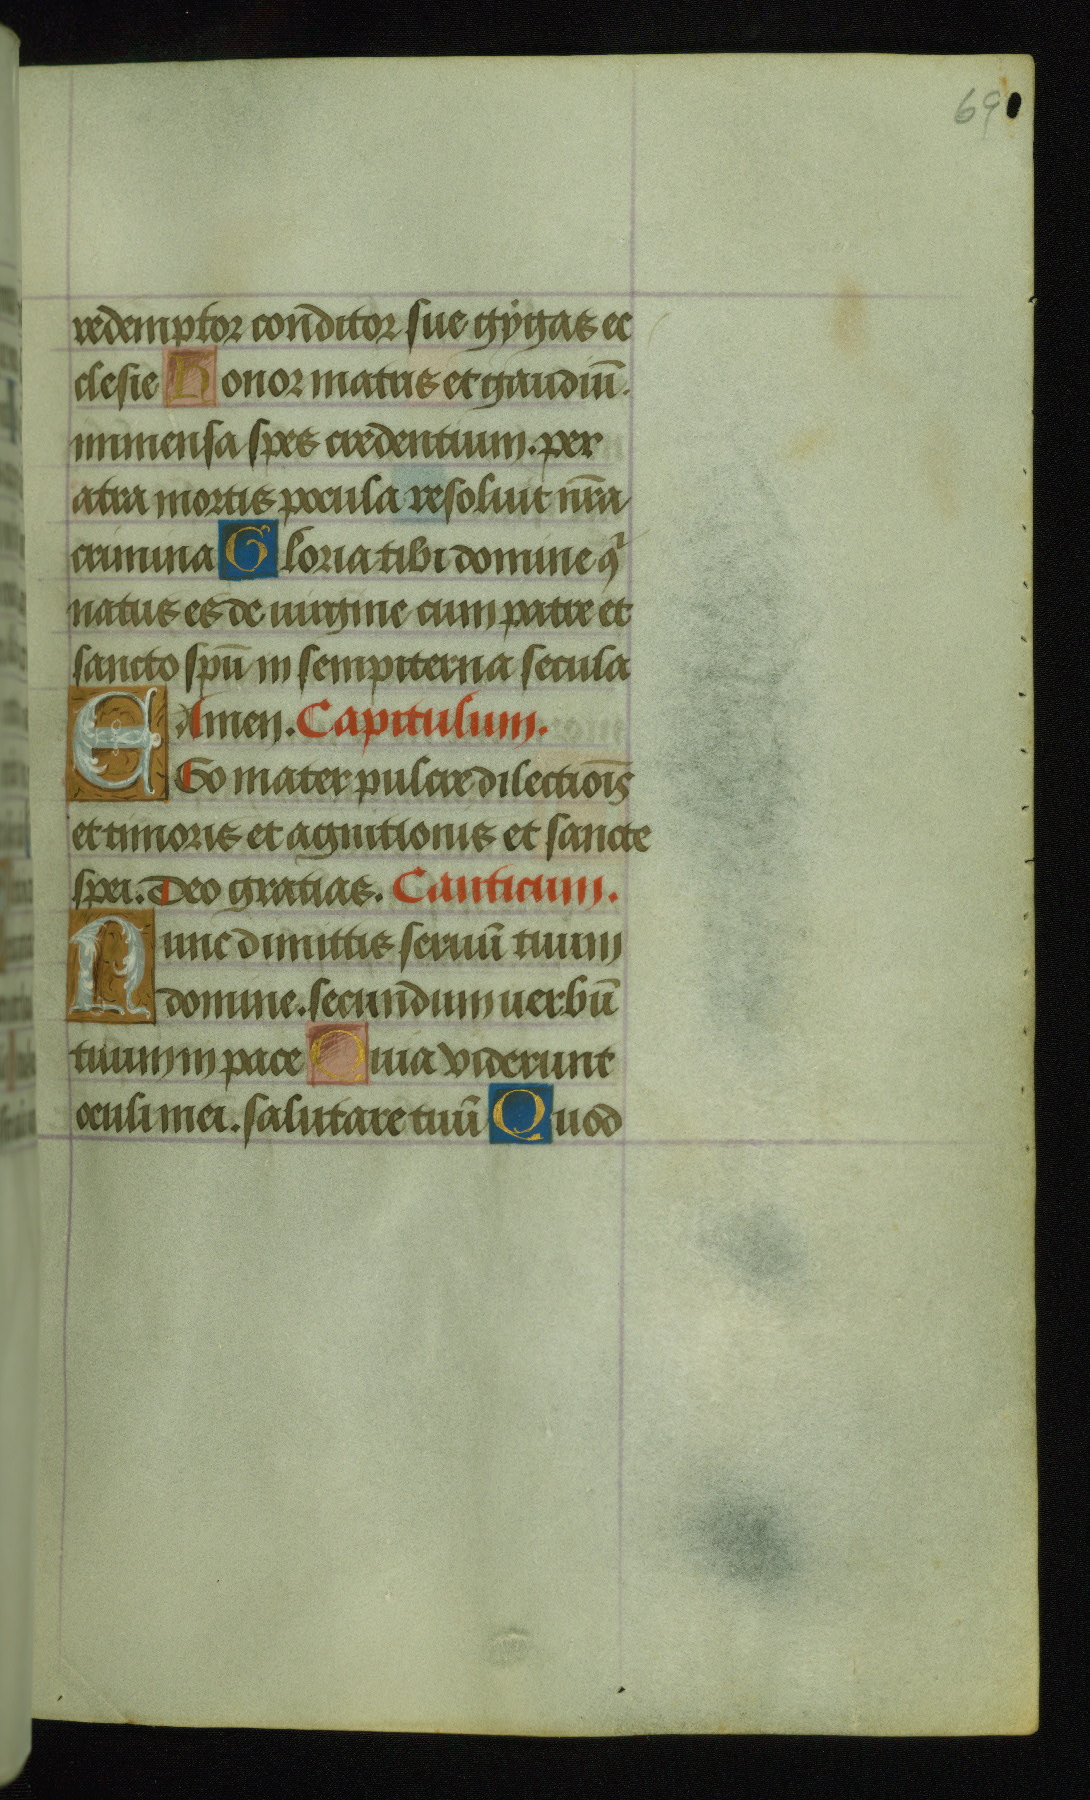 69
redemptor conditor sue gÿgas ec
clesie Honor matris et gaudiū.
immensa spes credentium. per
atra mortis pocula resoluit nr̄a
crimina Gloria tibi domine qͥ
natus es de uirgine cum patre et
sancto spū in sempiterna secula
Amen. Capitulum.
EGo mater pulcre dilectiōis
et timoris et agnitionis et sancte
spei. Deo gratias. Canticum.
Nunc dimittis seruū tuum
domine. secundum uerbū
tuum in pace Quia viderunt
oculi mei. salutare tuū Quod